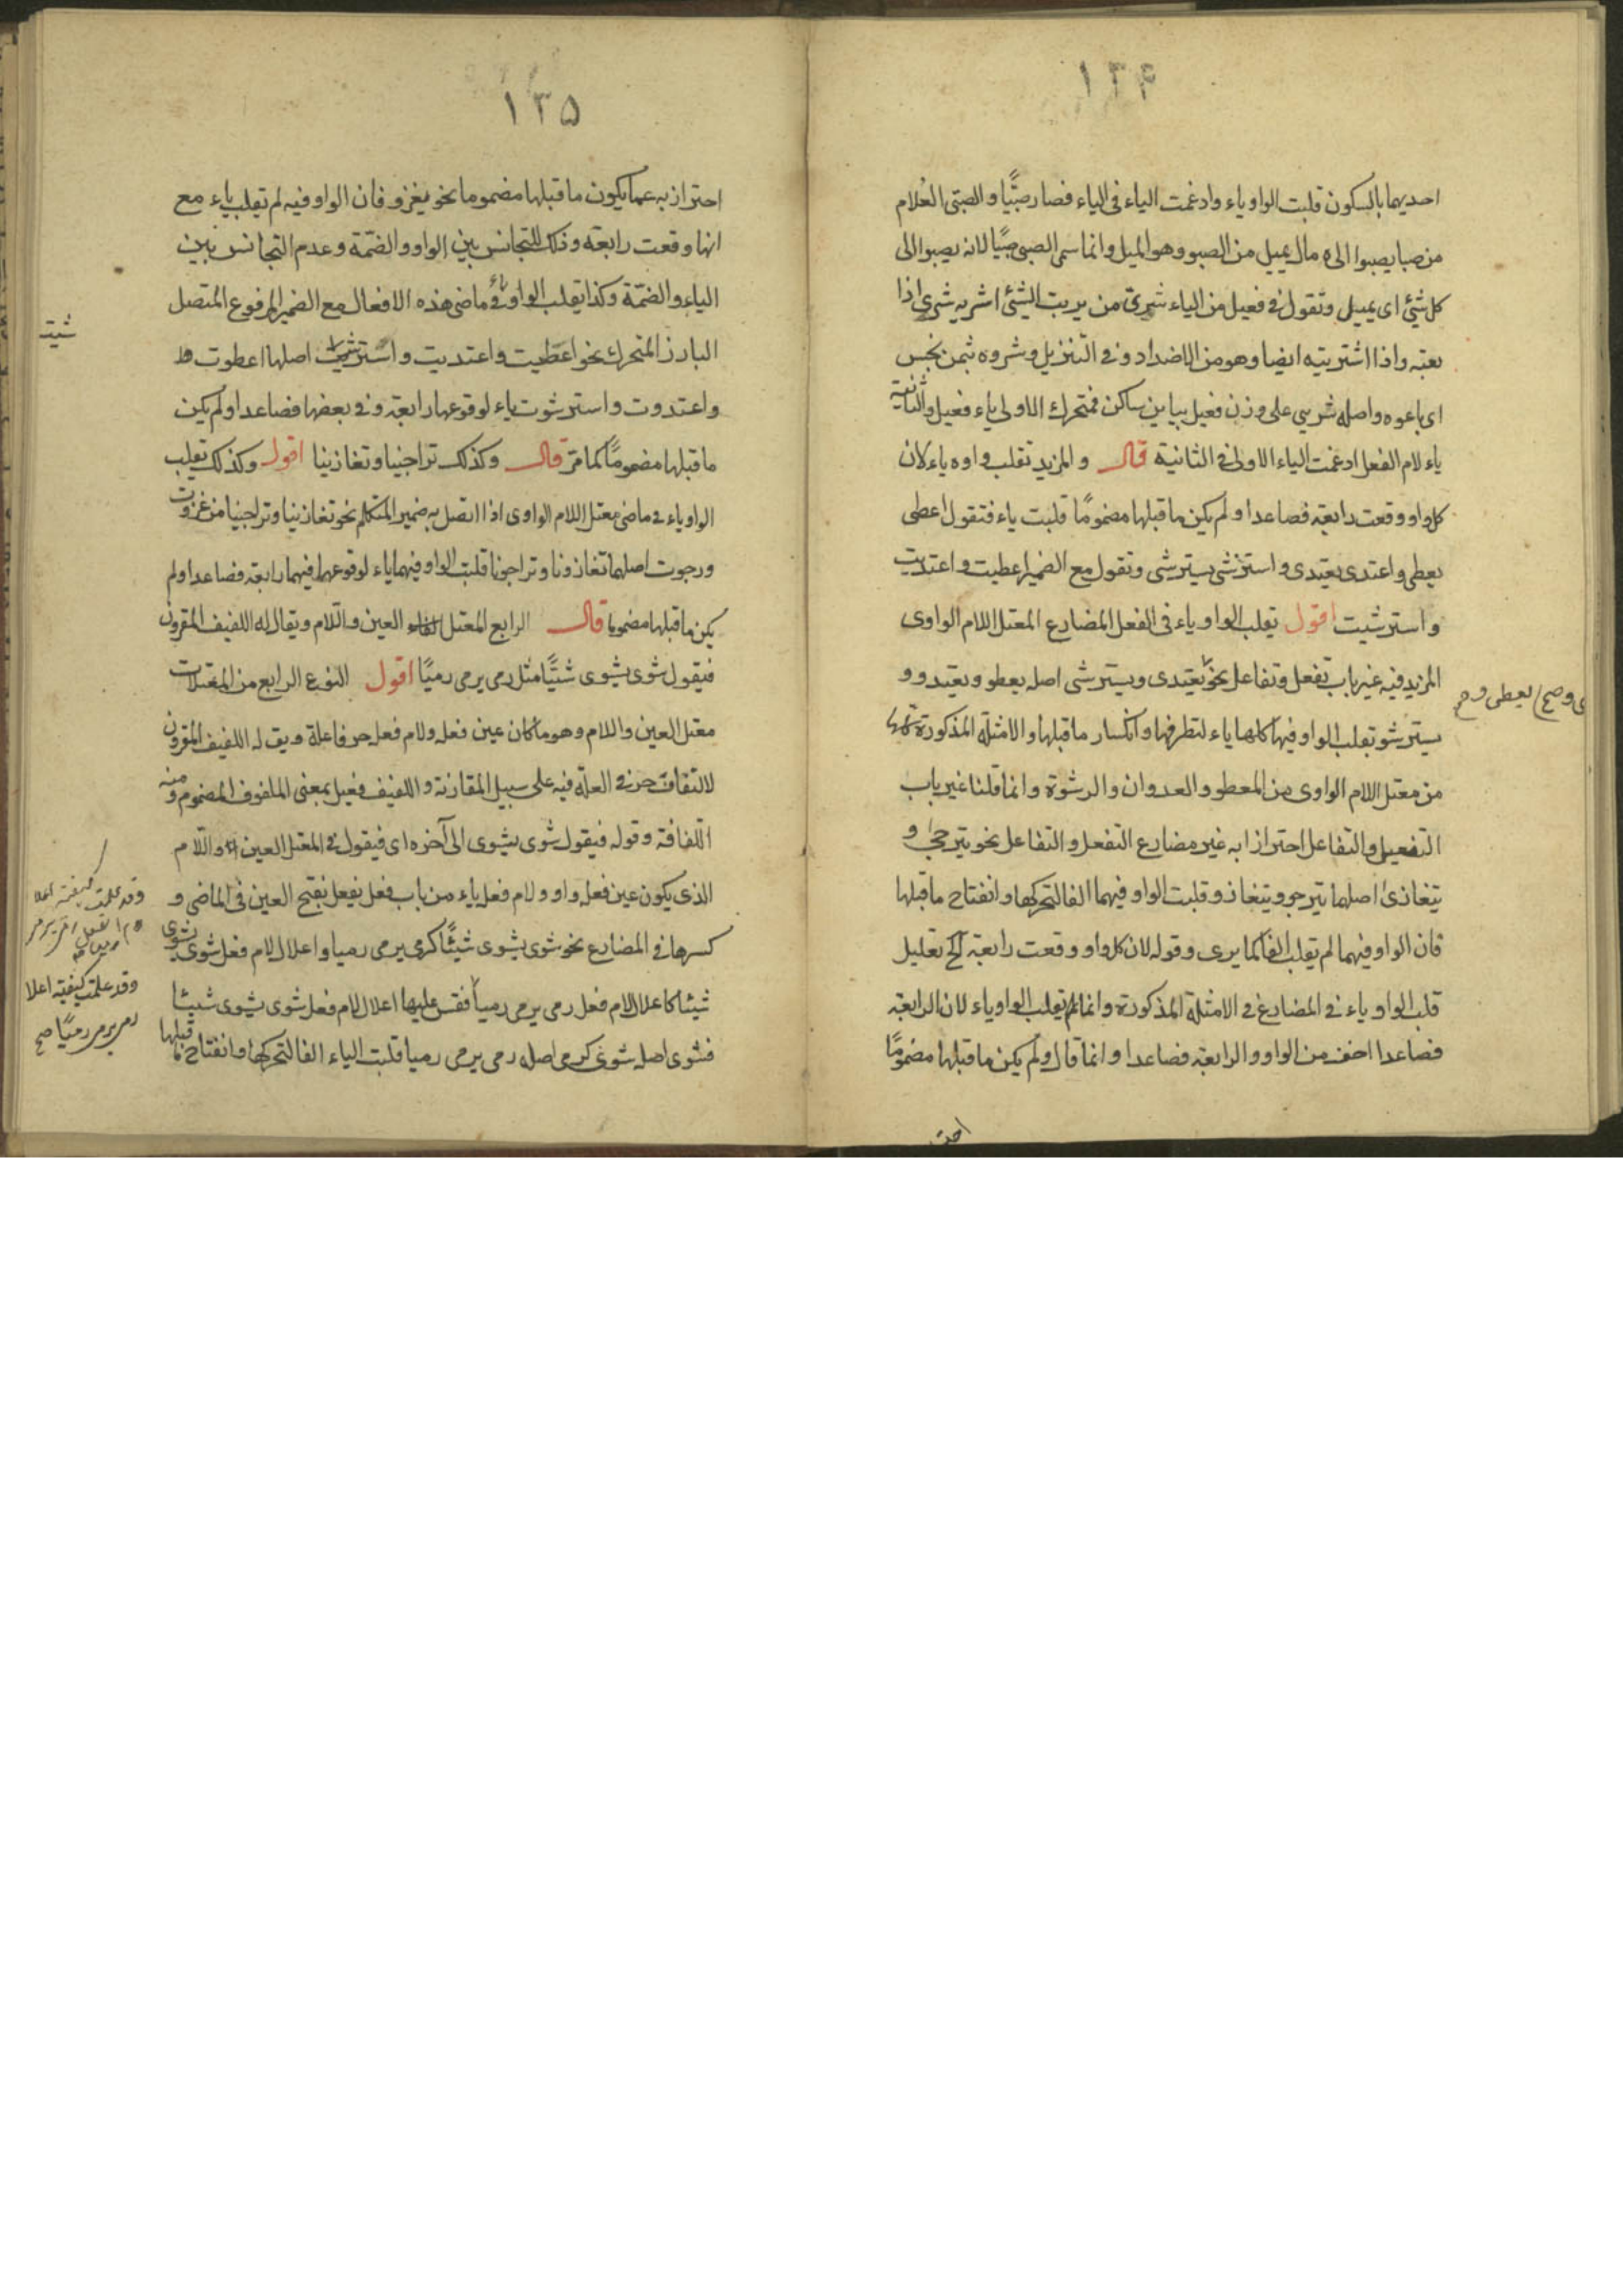 ١٣۴
احديهما بالسكون قلبت الواو ياء وادغمت الياء فى الياء فصار صبيًّا والصبى الغلام
من صبا يصبوا الى مال يميل من الصبو وهو الميل وانما سمى الصبى صبيًّا لانه يصبوا الى
كل شئ اى يميل وتقول فى فعيل من الياء شرى من يريت الشئ اشريه شرى اذا
بعته واذا اشتريته ايضا وهو من الاضداد وفى التنزيل وشروه بثمن بخس
اى باعوه واصله شريى على وزن فعيل بيايين ساكن فمتحرك الاولى ياء فعيل والثانية
ياء لام الفعل ادغمت الياء الاولى فى الثانية قال والمزيد تقلب واوه ياء لان
كل واو وقعت رابعة فصاعدا ولم يكن ما قبلها مضمومًا قلبت ياء فتقول اعطى
يعطى واعتدى يعتدى واسترشى يسترشى وتقول مع الضمير اعطيت واعتديت
واسترشيت اقول تقلب الواو ياء فى الفعل المضارع المعتل اللام الواوى
المزيد فيه غير باب تفعل وتفاعل نحو يعتدى ويسترشى اصله يعطو ويعتدو و
يسترشو تقلب الواو فيها كلها ياء لتطرفها وانكسار ما قبلها والامثلة المذكورة
من معتل اللام الواوى من المعطو والعدوان والرشوة وانما قلنا غير باب
التفعيل والتفاعل احترازا به غير مضارع التفعل والتفاعل نحو يترجى و
يتغازى اصلهما يترجو ويتغازو قلبت الواو فيهما الفا لتحركها وانفتاح ما قبلها
فان الواو فيهما لم تقلب الفا كما يرى وقوله لان كل واو وقعت رابعة الخ تعليل
قلب الواو ياء فى المضارع فى الامثلة المذكورة وانما لم تقلب الواو ياء لان الرابعة
فصاعدا اخف من الواو والرابعة فصاعدا وانما قال ولم يكن ما قبلها مضمومًا
يعطى و صح
احتـ
١٣۵
احترازبه عما يكون ما قبلها مضموما نحو يغزو فان الواو فيه لم تقلب ياء مع
انها وقعت رابعة وذلك للتجانس بين الواو والضمّة وعدم التجانس بين
الياء والضمّة وكذا يقلب الواو ياء فى ماضى هذه الافعال مع الضمير المرفوع المتصل
البارز المتحرك نحو اعطيت واعتديت واسترشيت اصلها اعطوت
واعتدوت واسترشوت ياء لوقوعها رابعة وفى بعضها فصاعدا ولم يكن
ما قبلها مضمومًا كما مرّ قال وكذلك تراجينا وتغازينا اقول وكذلك تقلب
الواو ياء فى ماضى معتل اللام الواوى اذا اتصل به ضمير المتكلم نحو تغازينا وتراجينا من غزوت
ورجوت اصلهما تغازونا وتراجونا قلبت الواو فيهما ياء لوقوعها فيهما رابعة فصاعدا ولم
يكن ما قبلها مضموما قال الرابع المعتل العين واللام ويقال له اللفيف المقرون
فيقول شوى يشوى شيًّا مثل رمى يرمى رميًا اقول النوع الرابع من المعتلات
معتل العين واللام وهو ما كان عين فعله ولام فعله حرفا علة ويق له اللفيف المقرون
لالتفاف حرفى العلّة فيه على سبيل المقارنة واللفيف فعيل بمعنى الملفوف المضموم ومنه
اللفافة وقوله فيقول شوى يشوى الى آخره اى فيقول فى المعتل العين واللام
الذى يكون عين فعله واو ولام فعله ياء من باب فعل يفعل بفتح العين فى الماضى و
كسرها فى المضارع نحو شوى يشوى شيئًا كرمى يرمى رميا واعلال لام فعل شوى يشوى
شيئا كاعلال لام فعل رمى يرمى رمياً فقس عليها اعلال لام فعل شوى يشوى شيئا
فشوى اصله شوى كرمى اصله رمى يرمى رميا قلبت الياء الفا لتحركها وانفتاح ما قبلها
شيت
وقد علمت كيفية اعلا
وقد علمت كيفية اعلا
رمى يرمى رميًا صح